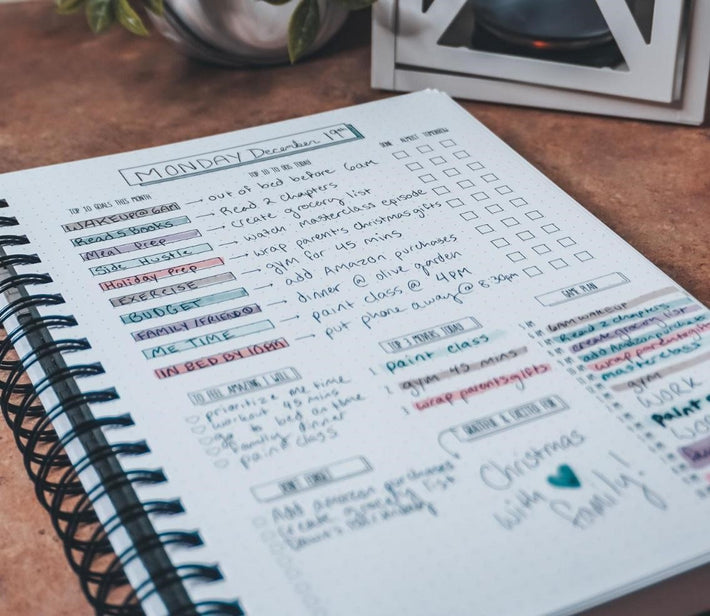 MONDAY December 19th
TOP 10 GOALS THIS MONTH
TOP 10 TO DOS TODAY
DONE ALMOST TOMORROW
WAKEUP @ 6AM → out of bed before 6am
Read 5 Books → Read 2 chapters
Meal Prep → create grocery list
Side Hustle → watch masterclass episode
Holiday Prep → wrap parent's christmas gifts
EXERCISE → gym for 45 mins
BUDGET → add Amazon purchases
FAMILY/FRIEND → dinner @ olive garden
ME TIME → paint class @ 4PM
IN BED BY 10PM → put phone away @ 8:30pm
TO FEEL AMAZING I WILL
prioritize me time
workout 45 mins
go to bed on time
family dinner
paint class
TOP 3 MOVERS TODAY
1 paint class
2 gym 45 mins
3 wrap parents gifts
DON'T FORGET
Add amazon purchases
create grocery list
GRATEFUL & EXCITED FOR
Christmas
with family!
GAME PLAN
6AM WAKEUP
Read 2 chapters
create grocery list
add Amazon purchases
wrap parents gifts
masterclass
gym
WORK
paint